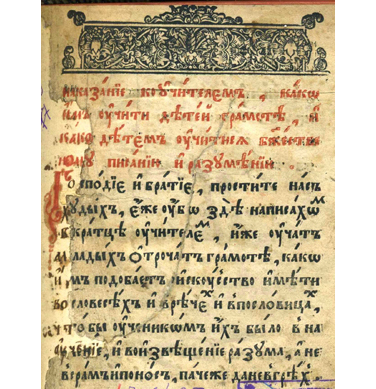 наказанїе ко оучителемъ, какѡ
имъ оучити дѣтей грамотѣ, и
какѡ дѣтемъ оучитисѧ бжествен
ному писанїю и разꙋмѣнїю
Господїе и братїе, простите насъ
хꙋдыхъ, еже оубѡ здѣ написахѡм
вкратцѣ оучителем, иже оучатъ
младыхъ отрочатъ грамотѣ, какѡ
имъ подобаетъ искоусство имѣти
въ словесѣхъ и врѣчех и впословицах,
чтобы оученикѡмъ ихъ было в на
оученїе, и вои звѣщенїе разꙋма, а не
вграмъ и поносъ, паче же да не вгрѣхъ